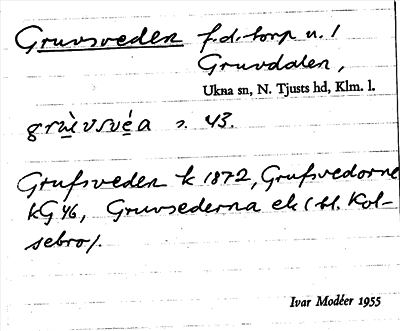 Gruvsveden f.d. torp u. 1
Gruvdalen,
Ukna sn, N. Tjusts hd, Klm. l.
s. 43.
Grufsveden k 1872, Grufsvedorne
kG 46, Gruvsederna ek (bl. Kol-
sebro).
Ivar Modéer 1955